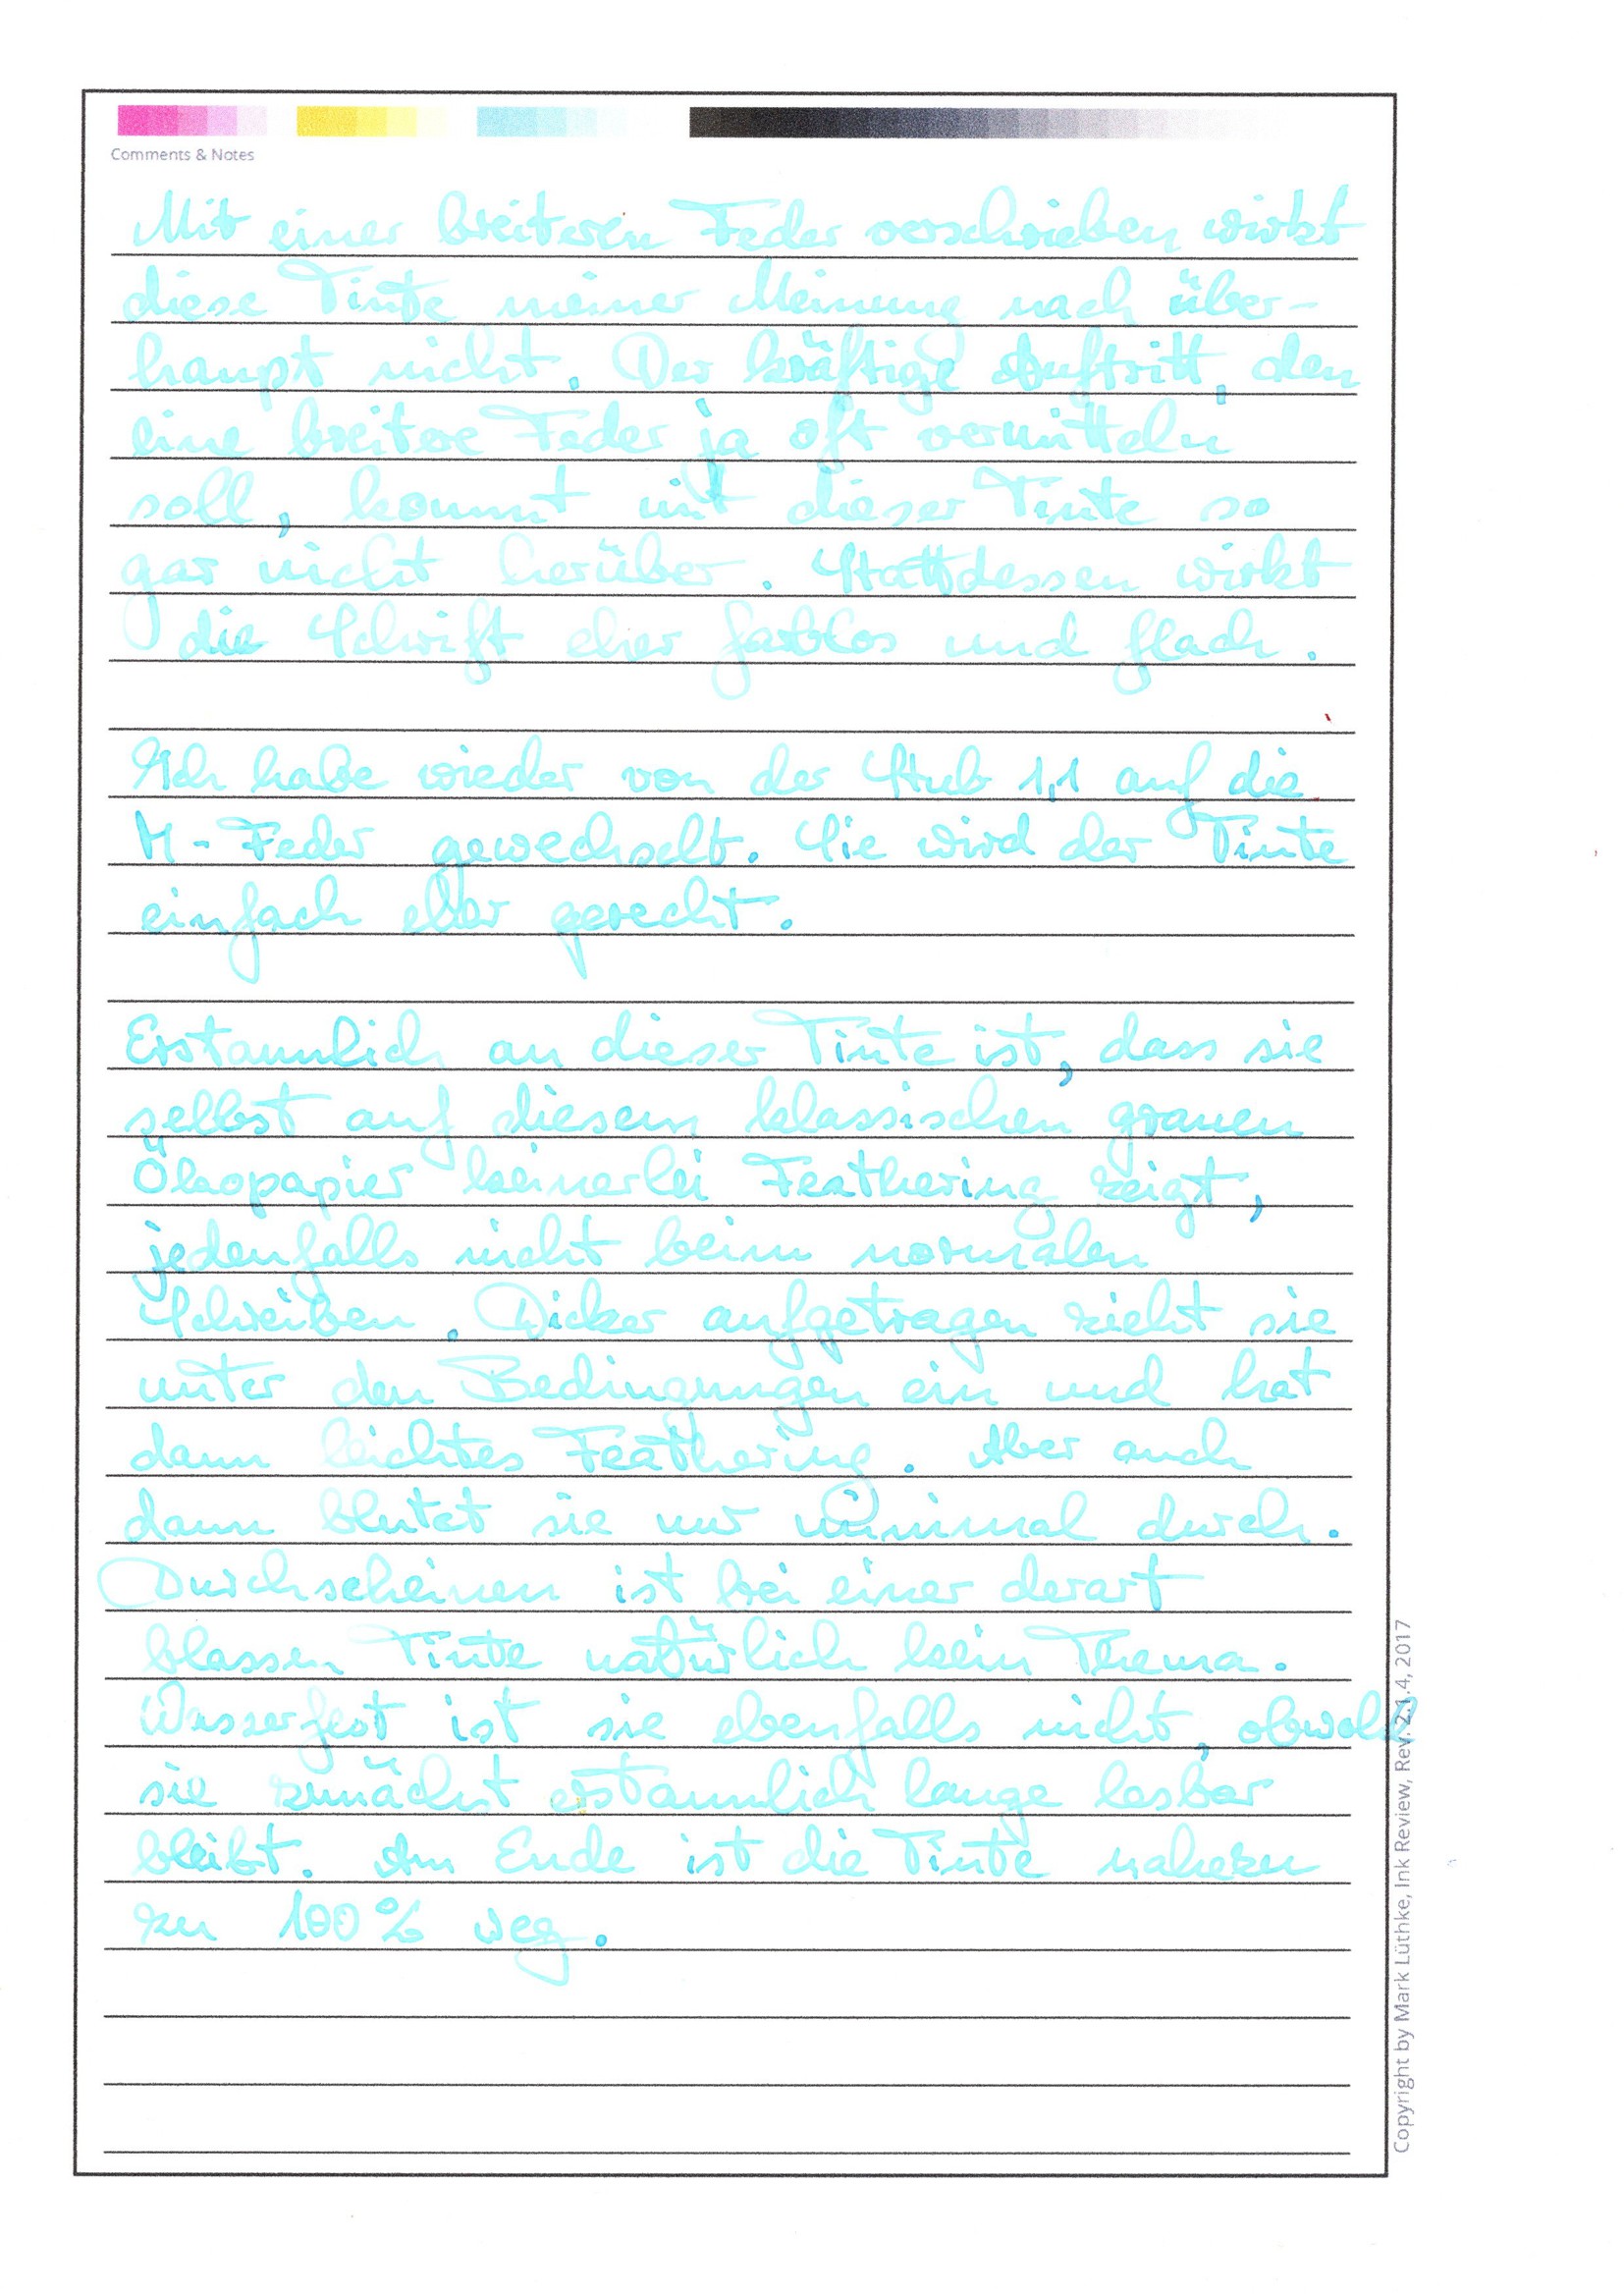 Comments & Notes
Mit einer breiteren Feder verschrieben wirkt
diese Tinte meiner Meinung nach über-
haupt nicht. Der kräftige Auftritt, den
eine breitere Feder ja oft vermitteln
soll, kommt mit dieser Tinte so
gar nicht herüber. Stattdessen wirkt
die Schrift eher farblos und flach.
Ich habe wieder von der Stub 1,1 auf die
M-Feder gewechselt. Sie wird der Tinte
einfach eher gerecht.
Erstaunlich an dieser Tinte ist, dass sie
selbst auf diesem klassischen grauen
Ökopapier keinerlei Feathering zeigt,
jedenfalls nicht beim normalen
Schreiben. Dicker aufgetragen zieht sie
unter den Bedingungen ein und hat
dann leichtes Feathering. Aber auch
dann blutet sie nur minimal durch.
Durchscheinen ist bei einer derart
blassen Tinte natürlich kein Thema.
Wasserfest ist sie ebenfalls nicht, obwohl
sie zunächst erstaunlich lange lesbar
bleibt. Am Ende ist die Tinte nahezu
zu 100% weg.
Copyright by Mark Lüthke, Ink Review, Rev. 2.1.4, 2017